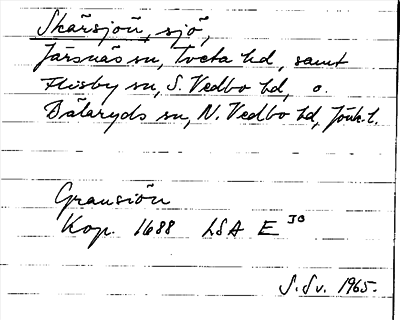 Skärsjön, sjö,
Järsnäs sn, Tveta hd, samt
Flisby sn, S. Vedbo hd, o.
Bälaryds sn, N. Vedbo hd, Jönk. l.
Gransiön
Kop. 1688 LSA E JO
S. Sv. 1965.